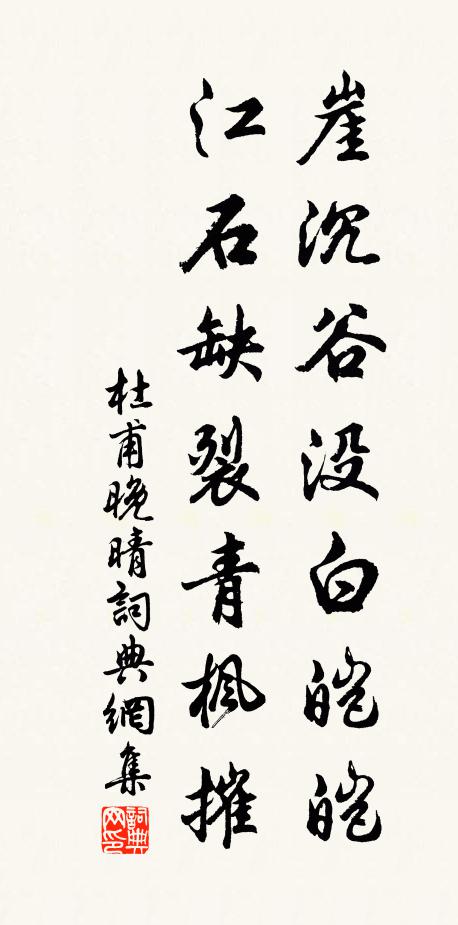 崖沉谷没白皑皑
江石缺裂青枫摧
杜甫晚晴詞典網集
詞典网印